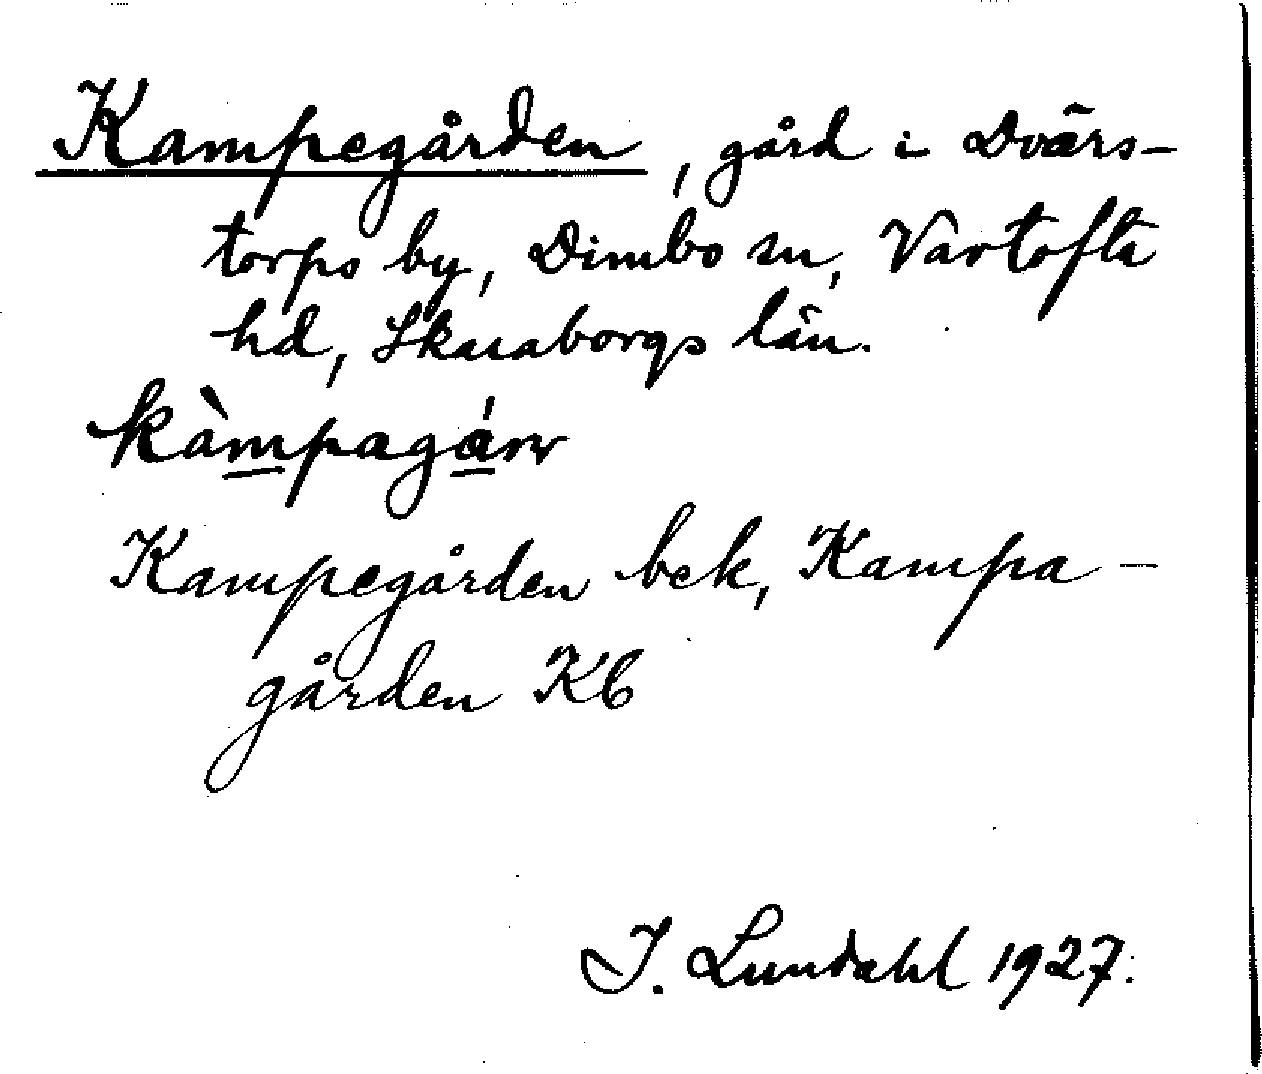 Kampegården, gård i Dvärs-
torps by, Dimbo sn, Vartofta
hd, Skaraborgs län.
kàmpagárv
Kampegården bek, Kampa-
gården Kb
I. Lundahl 1927.